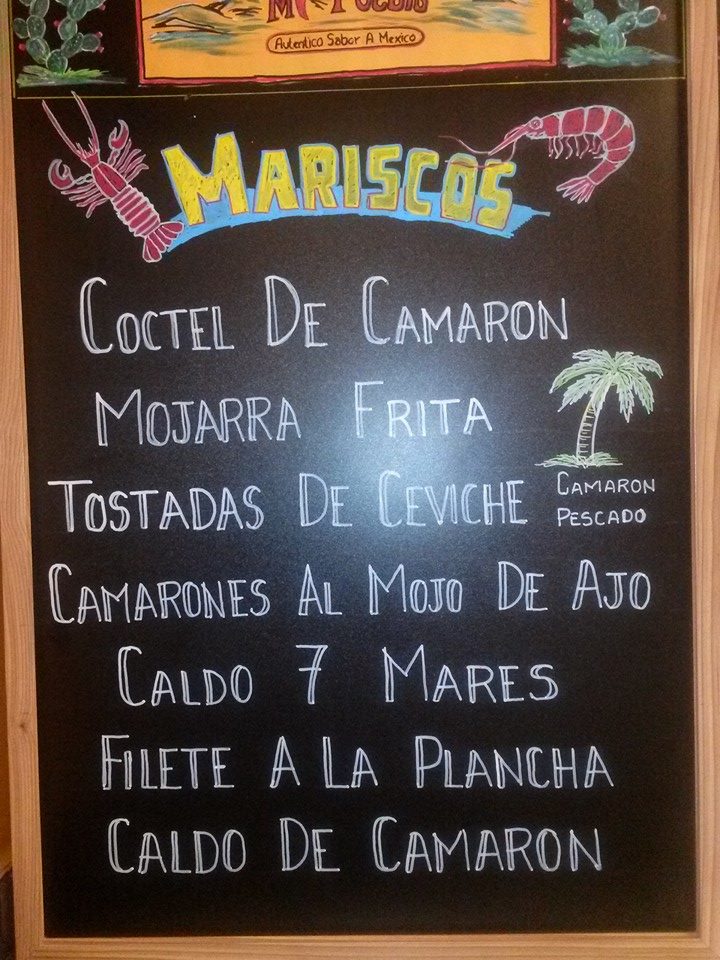 Autentico Sabor A Mexico
MARISCOS
COCTEL DE CAMARON
MOJARRA FRITA
TOSTADAS DE CEVICHE CAMARON
PESCADO
CAMARONES AL MOJO DE AJO
CALDO 7 MARES
FILETE A LA PLANCHA
CALDO DE CAMARON